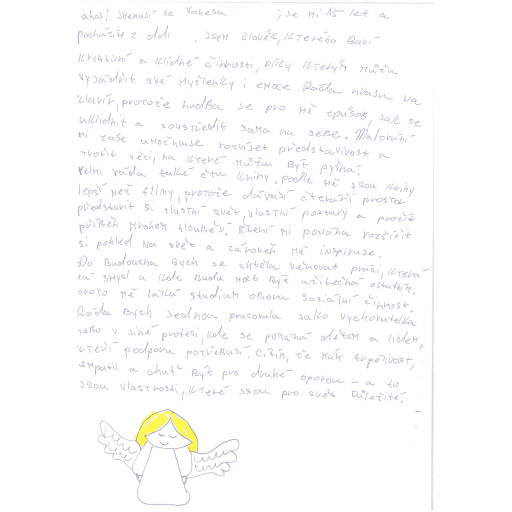 ahoj! Jmenuji se Vanesa ; je mi 15 let a
pocházím z . Jsem člověk, kterého baví
kreativní a klidné činnosti, díky kterým můžu
vyjádřit své myšlenky i emoce. Ráda hraju na
klavír, protože hudba je pro mě způsob, jak se
uklidnit a soustředit sama na sebe. Malování
mi zase umožňuje rozvíjet představivost a
tvořit věci, na které můžu být pyšná.
Velmi ráda také čtu knihy. podle mě jsou knihy
lepší než filmy, protože dávají čtenáři prostor
představit si vlastní svět, vlastní postavy a prožít
příběh mnohem hlouběji. Čtení mi pomáhá rozšířit
si pohled na svět a zároveň mě inspiruje.
Do budoucna bych se chtěla věnovat práci, která
má smysl a kde budu moct být užitečná ostatním.
proto mě láká studium oboru sociální činnost.
Ráda bych jednou pracovala jako vychovatelka
nebo v jiné profesi, kde se pomáhá dětem a lidem,
kteří podporu potřebují. Cítím, že mám trpělivost,
empatii a chuť být pro druhé oporou – a to
jsou vlastnosti, které jsou pro svět důležité.